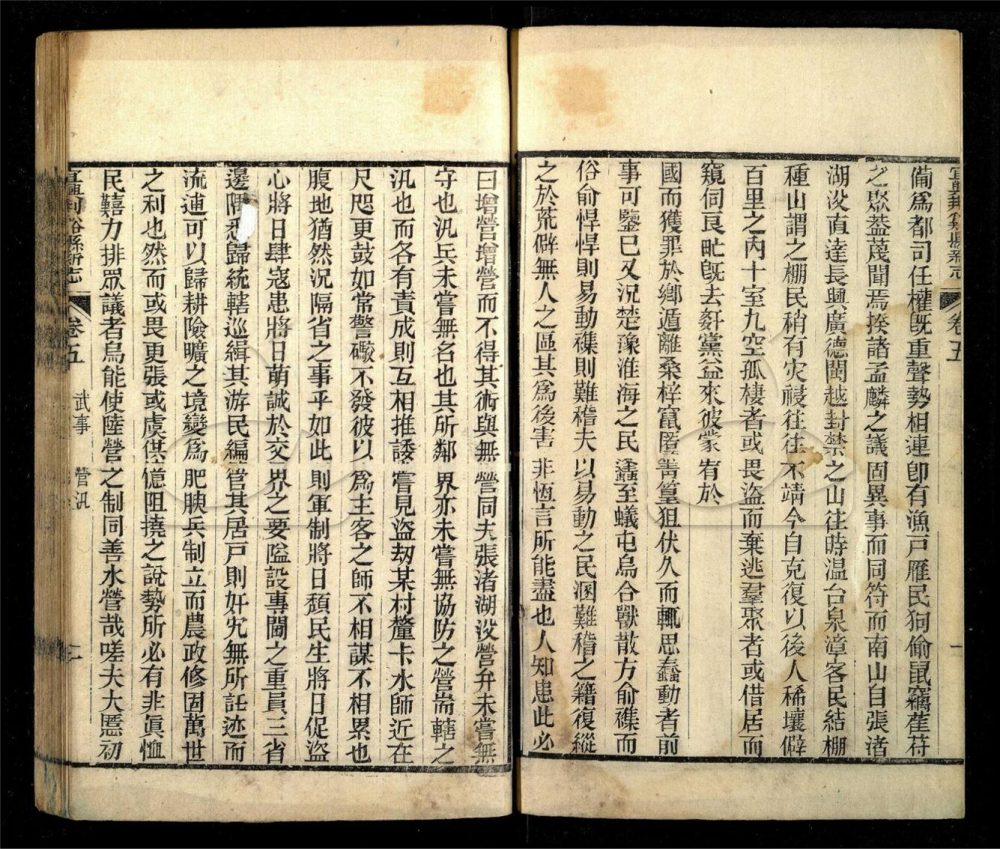 備爲都司任權旣重聲勢相連卽有漁戸雁民狗偷鼠竊萑苻
之眾葢蔑聞焉揆諸孟麟之議固異事而同符而南山自張渚
湖㳇直達長興廣德閩越封禁之山往時温台泉漳客民結棚
種山謂之棚民稍有灾祲往往不靖今自克復以後人稀壤僻
百里之內十室九空孤棲者或畏盜而棄逃羣聚者或借居而
窺伺良甿旣去姧黨益來彼黨有於
國而獲罪於鄉遁離桑梓竄匿菁篁狙伏久而輒思蠢動者前
事可鑒巳又況楚豫淮海之民蠭至蟻屯烏合獸散方俞襍而
俗俞悍悍則易動襍則難稽夫以易動之民溷難稽之籍復縱
之於荒僻無人之區其爲後害非恆言所能盡也人知患此必
宜興荆谿縣新志 卷五 一
曰增營增營而不得其術與無營同夫張渚湖㳇營弁未嘗無
守也汛兵未嘗無名也其所鄰界亦未嘗無協防之營耑轄之
汛也而各有責成則互相推諉嘗見盜刼某村釐卡水師近在
尺咫更鼓如常警礮不發彼以爲主客之師不相謀不相累也
腹地猶然況隔省之事乎如此則軍制將日頽民生將日促盜
心將日肆寇患將日萌誠於交界之要隘設專閫之重員三省
邊隅悉歸統轄巡緝其游民編官其居戸則奸宄無所託迹而
流逋可以歸耕險曠之境變爲肥腴兵制立而農政修固萬世
之利也然而或畏更張或虞供億阻撓之說勢所必有非眞恤
民囏力排眾議者烏能使陸營之制同善水營哉嗟夫大慝初
宜興荆谿縣新志 卷五 武事 營汛 二